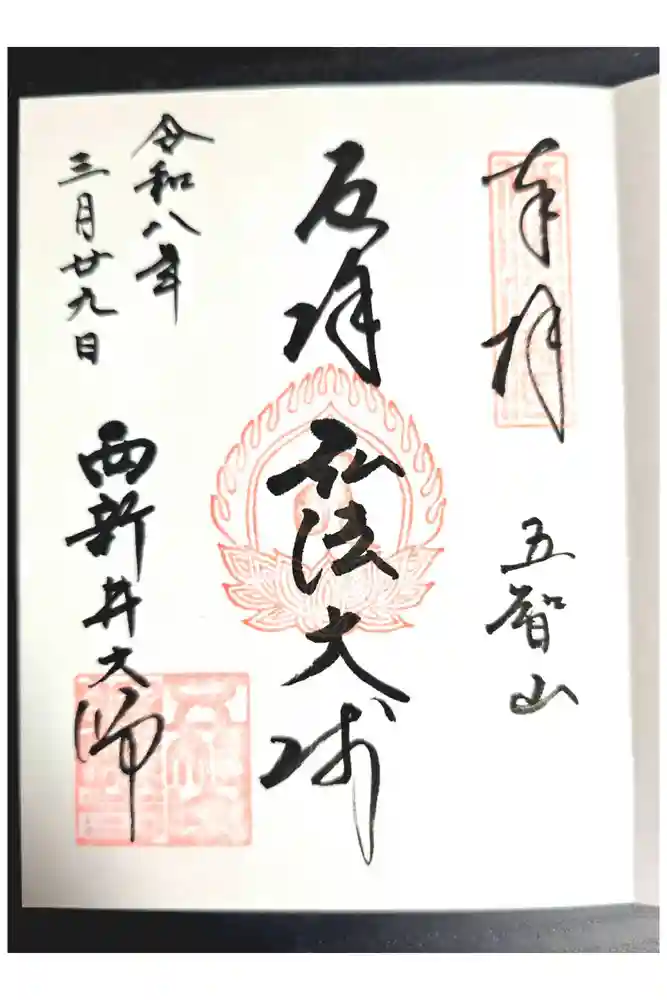 奉拝
五智山
厄除
弘法大師
令和八年
三月廿九日
西新井大師